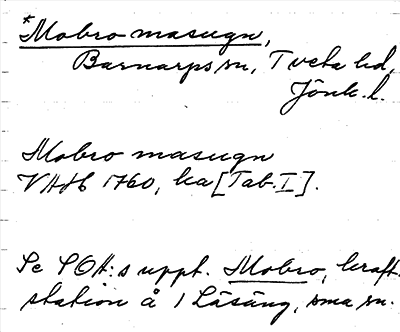 *Mobro masugn,
Barnarps sn, Tveta hd,
Jönk. l.
Mobro masugn
VAH 1760, ka [Tab. I].
Se SOA:s uppt. Mobro, kraft-
station å 1 Läsäng, sma sn.